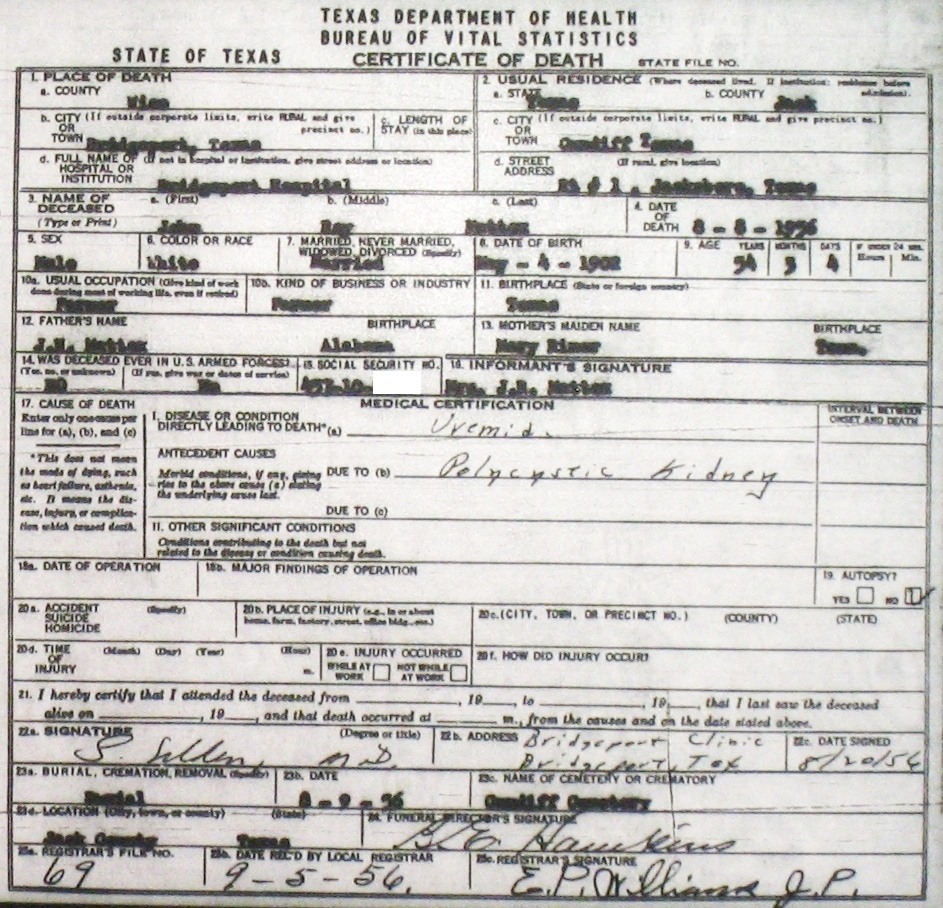 TEXAS DEPARTMENT OF HEALTH
BUREAU OF VITAL STATISTICS
STATE OF TEXAS CERTIFICATE OF DEATH STATE FILE NO.
1. PLACE OF DEATH
a. COUNTY
Wise
2. USUAL RESIDENCE (Where deceased lived. If institution: residence before admission).
a. STATE b. COUNTY
Texas Jack
b. CITY (If outside corporate limits, write RURAL and give
OR precinct no.)
TOWN
Bridgeport, Texas
c. LENGTH OF
STAY (in this place)
c. CITY (If outside corporate limits, write RURAL and give precinct no.)
OR
TOWN
Cundiff Texas
d. FULL NAME OF (If not in hospital or institution, give street address or location)
HOSPITAL OR
INSTITUTION
Bridgeport Hospital
d. STREET (If rural, give location)
ADDRESS
Rt # 1, Jacksboro, Texas
3. NAME OF a. (First) b. (Middle) c. (Last)
DECEASED
(Type or Print)
John Ray Mattox
4. DATE
OF
DEATH 8 - 8 - 1956
5. SEX
Male
6. COLOR OR RACE
White
7. MARRIED, NEVER MARRIED,
WIDOWED, DIVORCED (Specify)
Married
8. DATE OF BIRTH
May - 4 - 1902
9. AGE YEARS MONTHS DAYS IF UNDER 24 HRS.
Hours Min.
54 3 4
10a. USUAL OCCUPATION (Give kind of work
done during most of working life, even if retired)
Farmer
10b. KIND OF BUSINESS OR INDUSTRY
Farmer
11. BIRTHPLACE (State or foreign country)
Texas
12. FATHER'S NAME BIRTHPLACE
Mattox Alabama
13. MOTHER'S MAIDEN NAME BIRTHPLACE
Mary Tenn.
14. WAS DECEASED EVER IN U.S. ARMED FORCES?
(Yes, no, or unknown) (If yes, give war or dates of service)
NO No
15. SOCIAL SECURITY NO.
16. INFORMANT'S SIGNATURE
Mrs. J.R. Mattox
17. CAUSE OF DEATH
Enter only one cause per
line for (a), (b), and (c)
*This does not mean
the mode of dying, such
as heart failure, asthenia,
etc. It means the dis-
ease, injury, or complica-
tion which caused death.
MEDICAL CERTIFICATION
INTERVAL BETWEEN
ONSET AND DEATH
I. DISEASE OR CONDITION
DIRECTLY LEADING TO DEATH* (a) Uremia
ANTECEDENT CAUSES
Morbid conditions, if any, giving
rise to the above cause (a) stating
the underlying cause last.
DUE TO (b) Polycystic Kidney
DUE TO (c)
II. OTHER SIGNIFICANT CONDITIONS
Conditions contributing to the death but not
related to the disease or condition causing death.
18a. DATE OF OPERATION
18b. MAJOR FINDINGS OF OPERATION
19. AUTOPSY?
YES NO
20a. ACCIDENT (Specify)
SUICIDE
HOMICIDE
20b. PLACE OF INJURY (e.g., in or about
home, farm, factory, street, office bldg., etc.)
20c. (CITY, TOWN, OR PRECINCT NO.) (COUNTY) (STATE)
20d. TIME (Month) (Day) (Year) (Hour)
OF
INJURY m.
20e. INJURY OCCURRED
WHILE AT WORK NOT WHILE AT WORK
20f. HOW DID INJURY OCCUR?
21. I hereby certify that I attended the deceased from , 19 , to , 19 , that I last saw the deceased
alive on , 19 , and that death occurred at m., from the causes and on the date stated above.
22a. SIGNATURE (Degree or title)
M.D.
22b. ADDRESS Bridgeport Clinic
Bridgeport, Tex
22c. DATE SIGNED
8/20/56
23a. BURIAL, CREMATION, REMOVAL (Specify)
Burial
23b. DATE
8 - 9 - 56
23c. NAME OF CEMETERY OR CREMATORY
Cundiff Cemetery
23d. LOCATION (City, town, or county) (State)
Jack County Texas
24. FUNERAL DIRECTOR'S SIGNATURE
Hawkins
25a. REGISTRAR'S FILE NO.
69
25b. DATE REC'D BY LOCAL REGISTRAR
9-5-56.
25c. REGISTRAR'S SIGNATURE
E.P. Williams J.P.